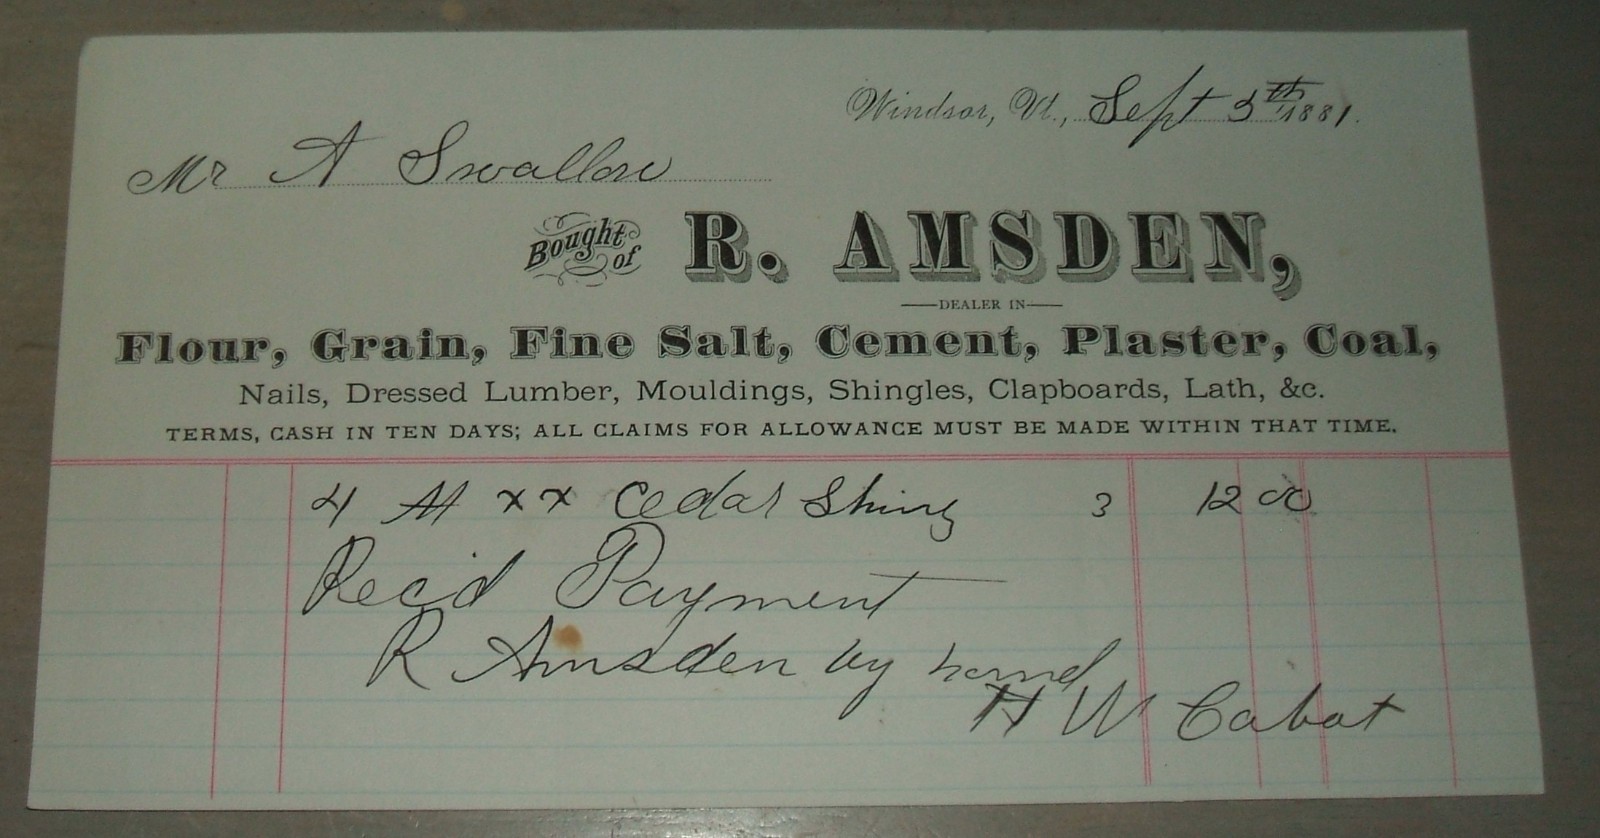 Windsor, Vt., Sept 5th 1881.
Mr A Swallow
Bought of R. AMSDEN,
DEALER IN
Flour, Grain, Fine Salt, Cement, Plaster, Coal,
Nails, Dressed Lumber, Mouldings, Shingles, Clapboards, Lath, &c.
TERMS, CASH IN TEN DAYS; ALL CLAIMS FOR ALLOWANCE MUST BE MADE WITHIN THAT TIME.
4 M xx Cedar Shing 3 12 00
Rec'd Payment
R Amsden by hand
H W Cabot